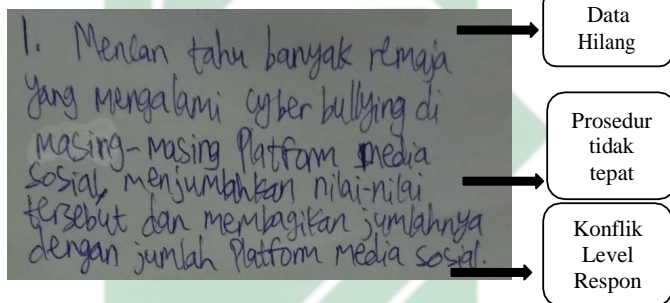 1. Mencari tahu banyak remaja
yang mengalami cyber bullying di
masing-masing Platform media
sosial, menjumlahkan nilai-nilai
tersebut dan membagikan jumlahnya
dengan jumlah Platform media sosial.
Data
Hilang
Prosedur
tidak
tepat
Konflik
Level
Respon